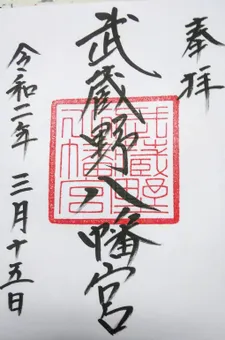 奉拝
武蔵野八幡宮
武蔵野八幡宮
令和二年三月十五日